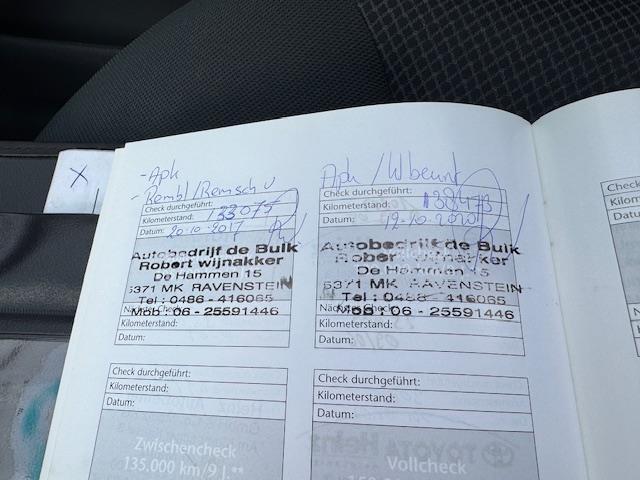 - Apk
- Rembl/Remsch v
Check durchgeführt:
Kilometerstand: 133077
Datum: 20-10-2017
Autobedrijf de Bulk
Robert wijnakker
De Hammen 15
5371 MK RAVENSTEIN
Tel : 0486 - 416065
Mob : 06 - 25591446
Kilometerstand:
Datum:
Check durchgeführt:
Kilometerstand:
Datum:
Zwischencheck
135.000 km/9 J.**
Apk /
Check durchgeführt:
Kilometerstand: 138473
Datum: 19-10-2020
Autobedrijf de Bulk
Robert wijnakker
De Hammen 15
5371 MK RAVENSTEIN
Tel : 0486 - 416065
Mob : 06 - 25591446
Kilometerstand:
Datum:
Check durchgeführt:
Kilometerstand:
Datum:
TOYOTA
Vollcheck
Check
Kilometerst
Datum:
X